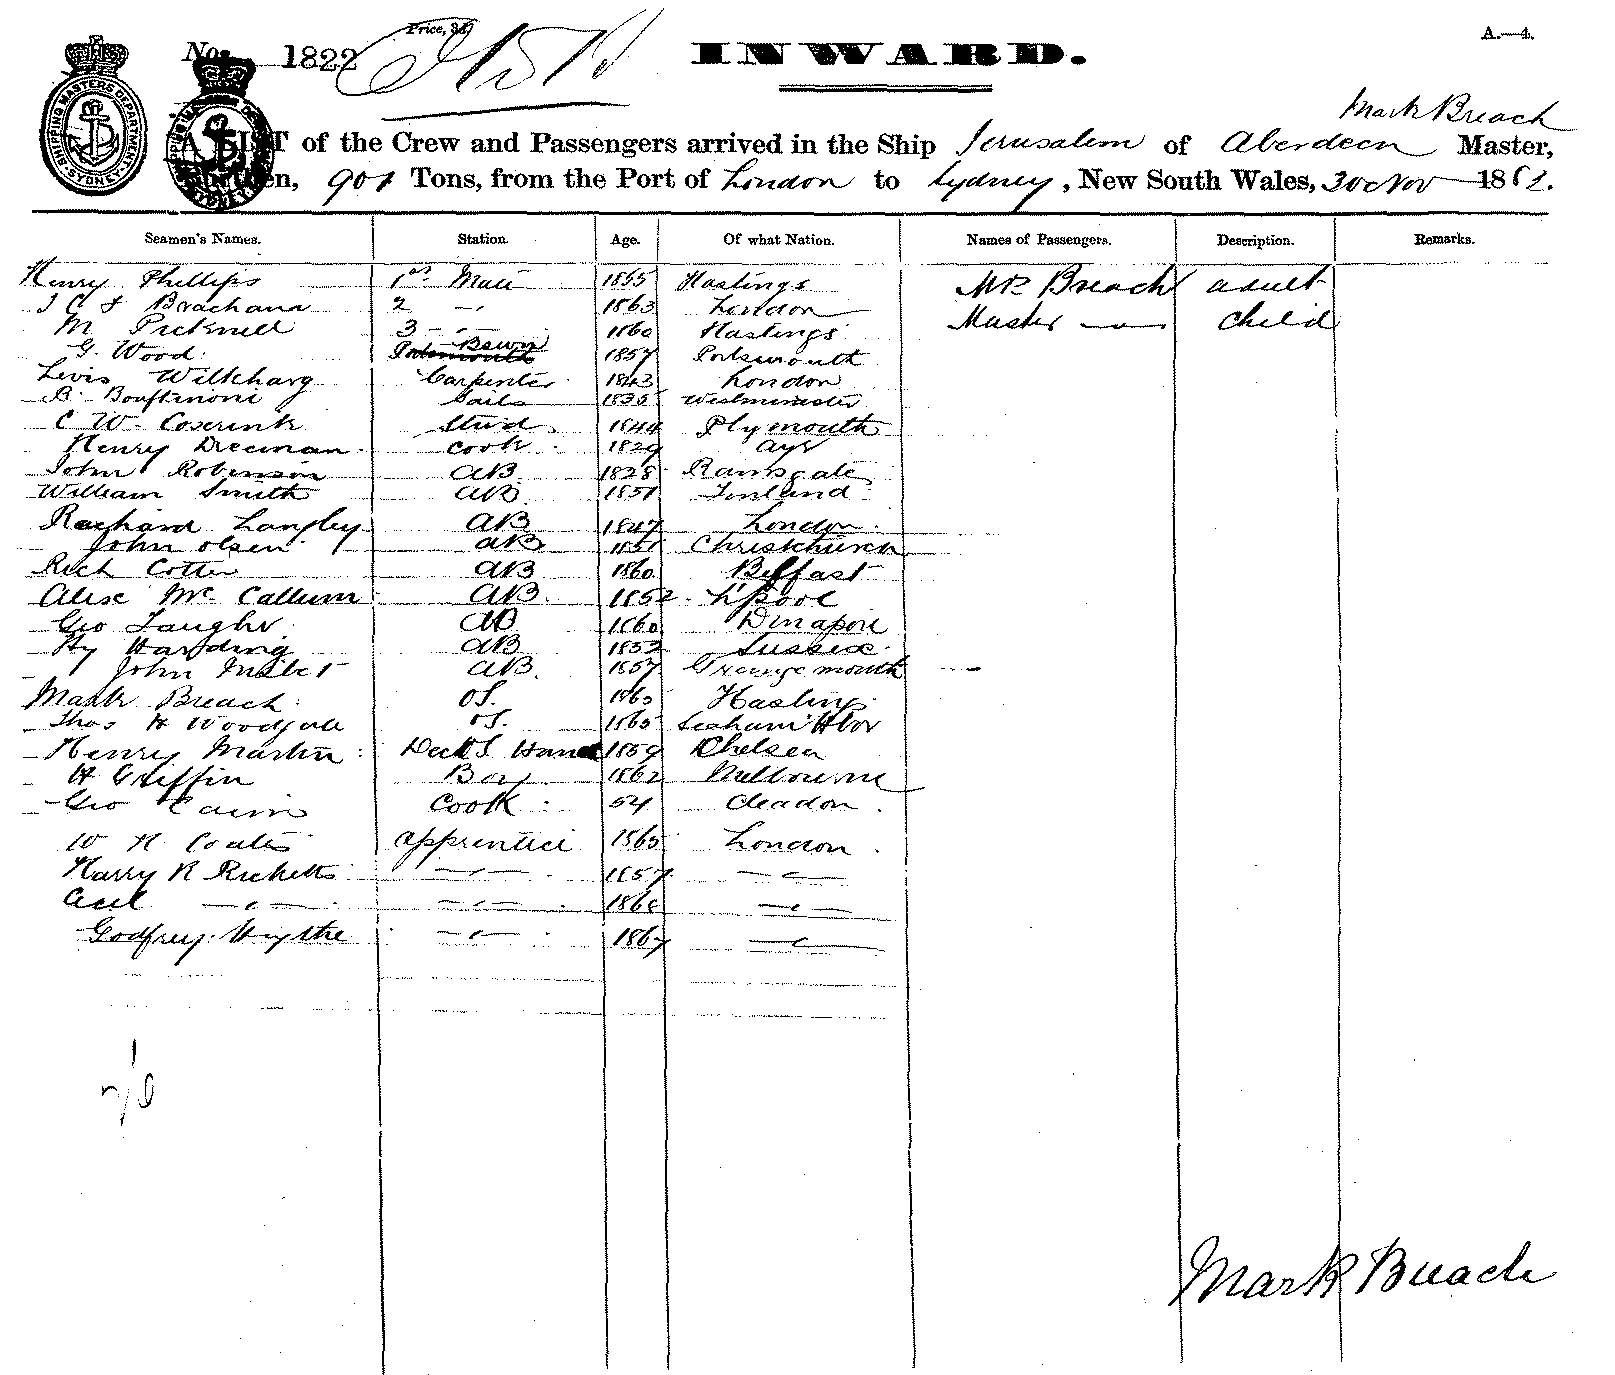 Price, 3d
A.—4.
No. 1822
INWARD.
SHIPPING MASTERS DEPARTMENT SYDNEY
Mark Breach
A LIST of the Crew and Passengers arrived in the Ship Jerusalem of Aberdeen Master,
901 Tons, from the Port of London to Sydney, New South Wales, 30 Nov 188
Seamen's Names. Station. Age. Of what Nation. Names of Passengers. Description. Remarks.
Henry Phillips 1st Mate 1855 Hastings Mrs Breach adult
2 — " — 1863 London Master — " — child
M Picknell 3 — " — 1860 Hastings
G. Wood Bswn 1857 Portsmouth
Carpenter 1843 London
Sails 1835 Westminster
C W Stwd 1844 Plymouth
Henry cook 1829 Ayr
John Robinson AB 1828 Ramsgate
William Smith AB 1851 Finland
Rachard Langley AB 1847 London
John Olsen AB 1851 Christchurch
Rich Cotter AB 1860 Belfast
Alex Mc Callum AB 1852 L'pool
Geo AB 1860 Dinapore
Hy Harding AB 1853 Sussex
John AB 1857 Grangemouth
Mark Breach OS. 1865 Hastings
Thos H Woodgate OS. 1865 Seaham Hbor
Henry Martin Deck S Hand 1859 Chelsea
H Griffin Boy 1862 Melbourne
Geo Cairns Cook 54 Cleadon
W H Coates apprentice 1865 London
Harry R Ricketts — " — 1857 — " —
Cecil — " — — " — 1860 — " —
Godfrey Wythe — " — 1867 — " —
Mark Breach